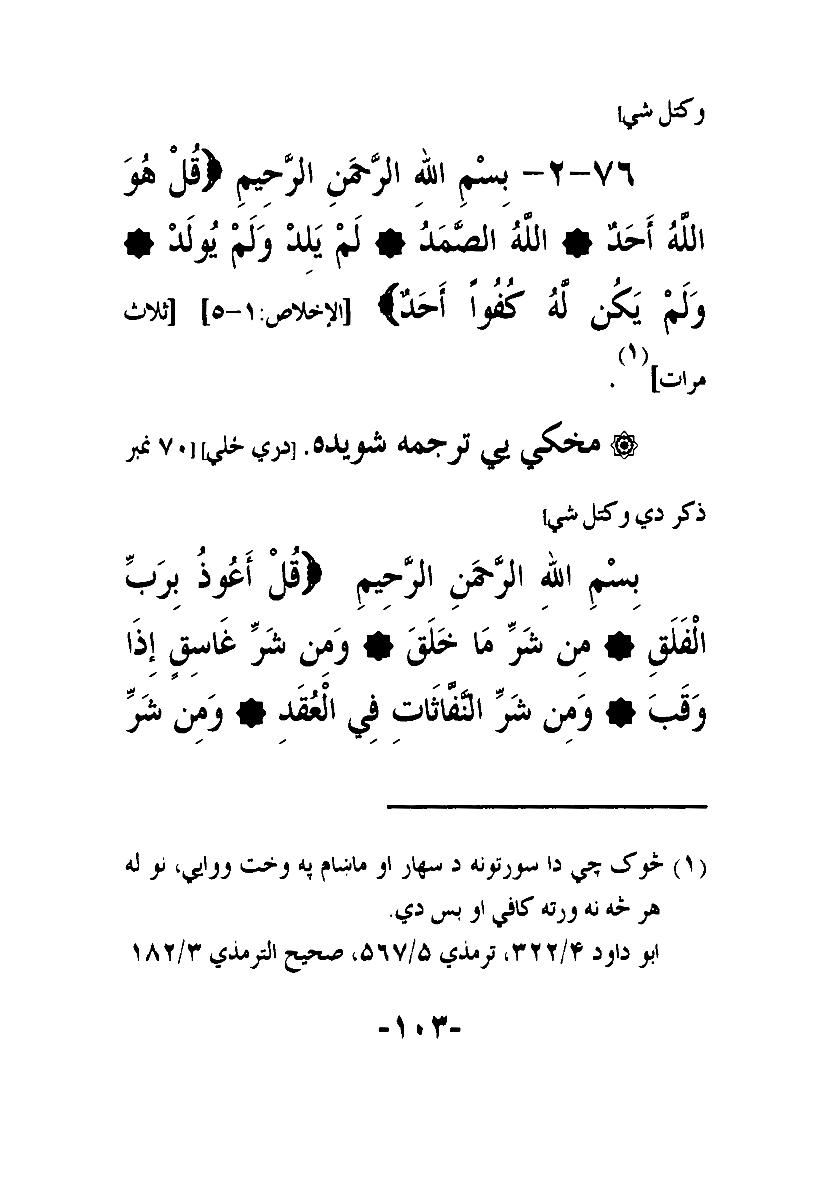 وکتل شي]
۷۶-۲- بِسْمِ اللهِ الرَّحْمَنِ الرَّحِيمِ ﴿قُلْ هُوَ
اللَّهُ أَحَدٌ ۞ اللَّهُ الصَّمَدُ ۞ لَمْ يَلِدْ وَلَمْ يُولَدْ ۞
وَلَمْ يَكُن لَّهُ كُفُواً أَحَدٌ﴾ [الإخلاص:۱-۵] [ثلاث
مرات](۱).
۞ مخکي يي ترجمه شویده. [دري ځلي] [۷۰ نمبر
ذکر دي وکتل شي]
بِسْمِ اللهِ الرَّحْمَنِ الرَّحِيمِ ﴿قُلْ أَعُوذُ بِرَبِّ
الْفَلَقِ ۞ مِن شَرِّ مَا خَلَقَ ۞ وَمِن شَرِّ غَاسِقٍ إِذَا
وَقَبَ ۞ وَمِن شَرِّ النَّفَّاثَاتِ فِي الْعُقَدِ ۞ وَمِن شَرِّ
(۱) څوک چي دا سورتونه د سهار او ماښام په وخت ووايي، نو له
هر څه نه ورته کافي او بس دي.
ابو داود ۳۲۲/۴، ترمذي ۵۶۷/۵، صحيح الترمذي ۱۸۲/۳
-۱۰۳-